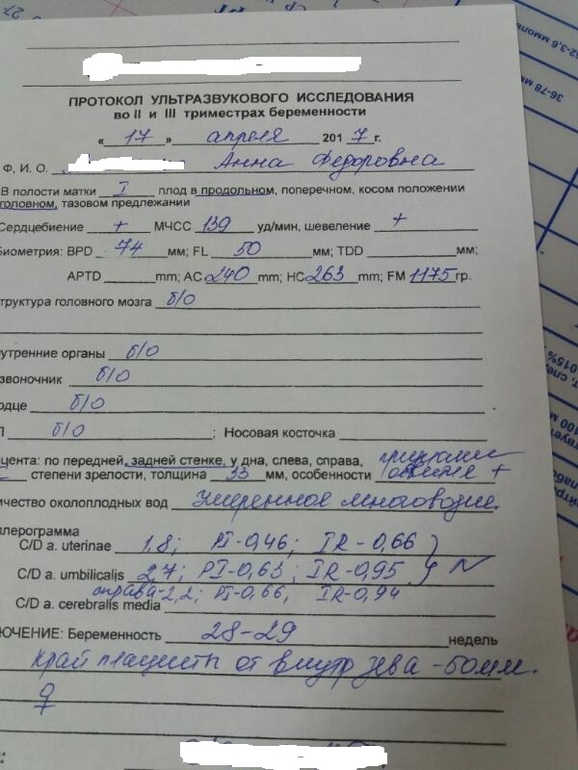 ПРОТОКОЛ УЛЬТРАЗВУКОВОГО ИССЛЕДОВАНИЯ
во II и III триместрах беременности
« 17 » апреля 2017 г.
Ф, И. О. Анна Федоровна
В полости матки I плод в продольном, поперечном, косом положении
головном, тазовом предлежании
Сердцебиение + МЧСС 139 уд/мин, шевеление +
Биометрия: BPD 74 мм; FL 50 мм; TDD мм;
APTD mm; AC 240 mm; HC 263 mm; FM 1175 гр.
труктура головного мозга б/о
утренние органы б/о
звоночник б/о
рдце б/о
П б/о ; Носовая косточка
цента: по передней, задней стенке, у дна, слева, справа,
степени зрелости, толщина 33 мм, особенности +
ичество околоплодных вод Умеренное многоводие.
плерограмма
C/D a. uterinae 1,8; PI-0,46; IR-0,66 }
C/D a. umbilicalis 2,7; PI-0,63; IR-0,95 } N
справа-2,2; PI-0,66, IR-0,94
C/D a. cerebralis media
ЮЧЕНИЕ: Беременность 28-29 недель
край плаценты от внутр зева -50мм.
♀